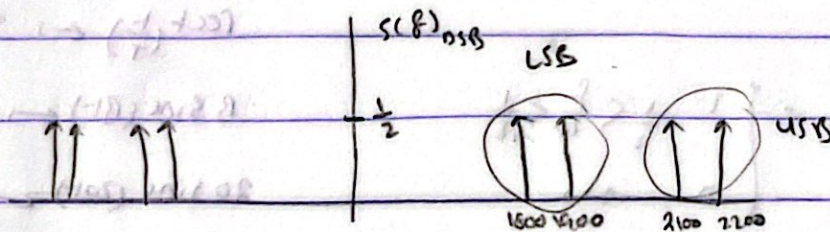 S(f)_DSB
LSB
1/2
USB
1800 1900 2100 2200